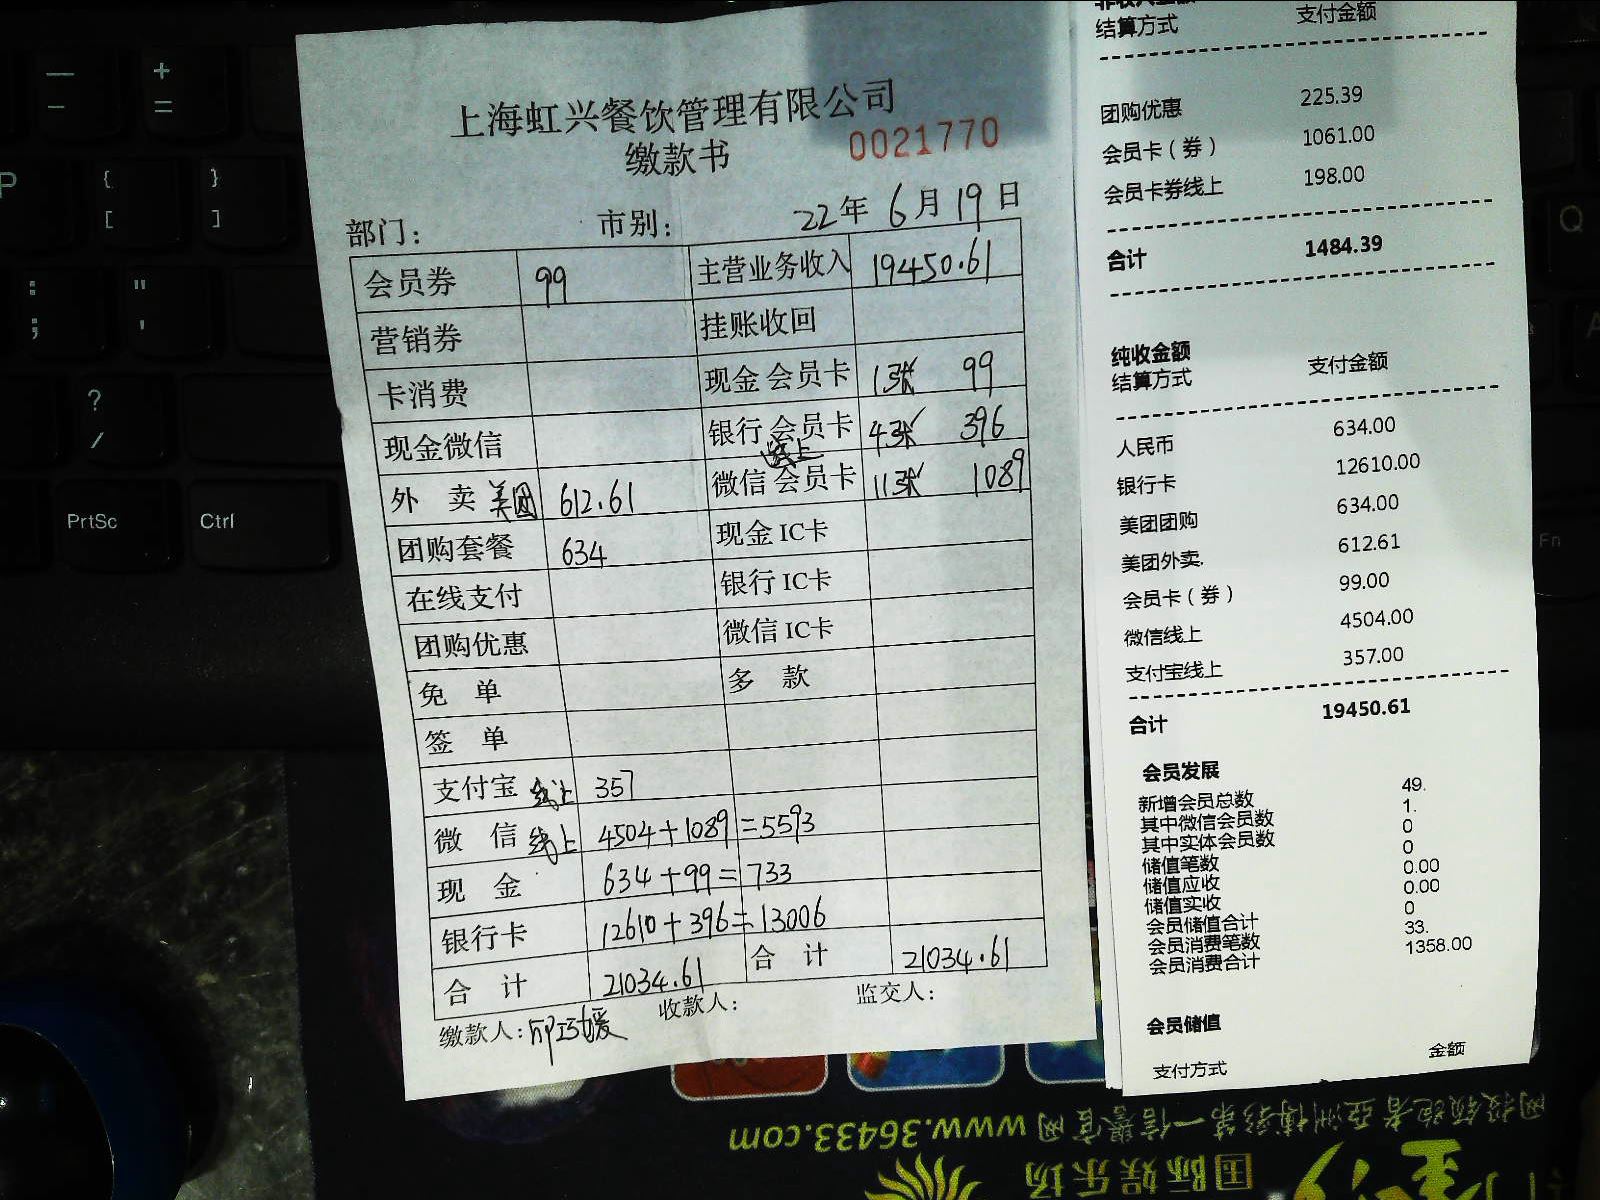 上海虹兴餐饮管理有限公司
缴款书
0021770
部门： 市别： 22年6月19日
会员券 99 主营业务收入 19450.61
营销券 挂账收回
卡消费 现金 会员卡 1张 99
现金微信 银行 会员卡 4张 396
线上
外 卖 美团 612.61 微信 会员卡 11张 1089
团购套餐 634 现金 IC卡
在线支付 银行 IC卡
团购优惠 微信 IC卡
免 单 多 款
签 单
支付宝 线上 357
微 信 线上 4504+1089=5593
现 金 634+99=733
银行卡 12610+396=13006
合 计 21034.61 合 计 21034.61
缴款人： 收款人： 监交人：
结算方式 支付金额
团购优惠 225.39
会员卡（券） 1061.00
会员卡券线上 198.00
合计 1484.39
纯收金额
结算方式 支付金额
人民币 634.00
银行卡 12610.00
美团团购 634.00
美团外卖. 612.61
会员卡（券） 99.00
微信线上 4504.00
支付宝线上 357.00
合计 19450.61
会员发展
新增会员总数 49.
其中微信会员数 1.
其中实体会员数 0
储值笔数 0
储值应收 0.00
储值实收 0.00
会员储值合计 0
会员消费笔数 33.
会员消费合计 1358.00
会员储值
支付方式 金额
P
{
[
}
]
:
;
"
'
?
/
+
=
PrtSc
Ctrl
Q
Fn
网投领跑者亚洲博彩第一信誉官网 www.36433.com
国际娱乐场